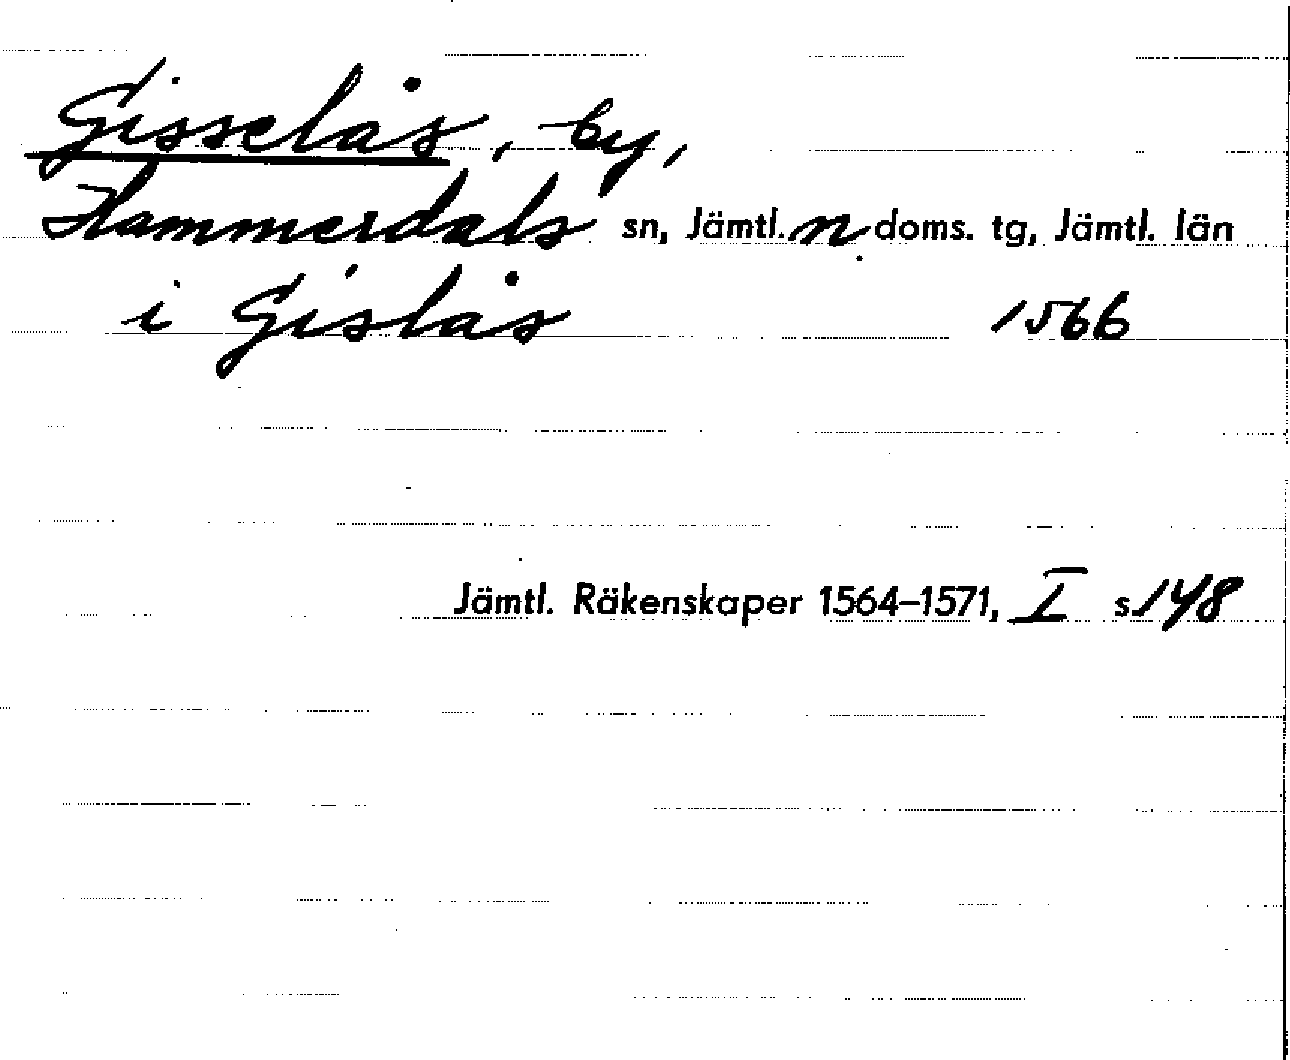 Gisselås, by,
Hammerdals sn, Jämtl. n doms. tg, Jämtl. län
i Gislås 1566
Jämtl. Räkenskaper 1564–1571, I s. 148